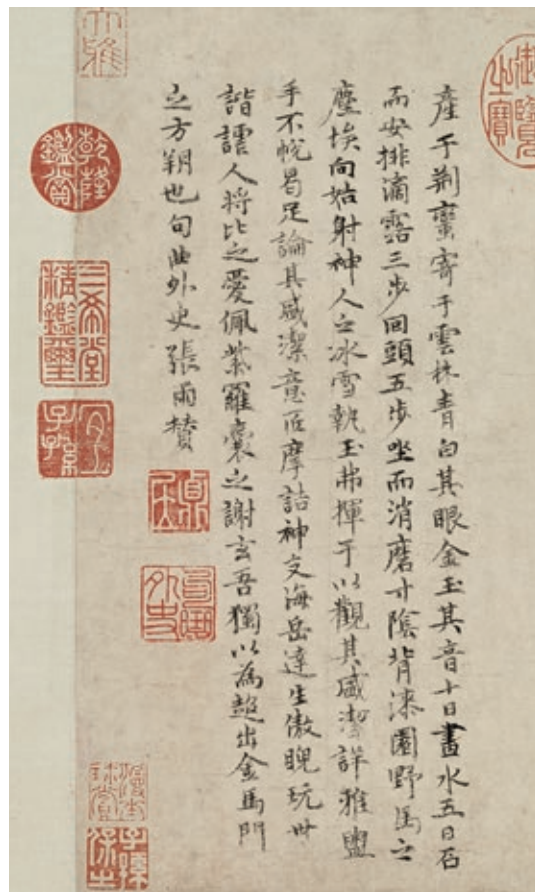 產于荆蠻寄于雲林青白其眼金玉其音十日畫水五日石
而安排滴露三步回頭五步坐而消磨寸陰背漆園野馬之
塵埃向姑射神人之冰雪執玉拂揮于以觀其盛潔詳雅盥
手不帨曷足論其盛潔意匠摩詰神交海岳達生傲睨玩世
諧謔人將比之愛佩紫羅囊之謝玄吾獨以為超出金馬門
之方朔也句曲外史張雨贊
御覽之寶
乾隆鑑賞
三希堂精鑑璽
宜子孫